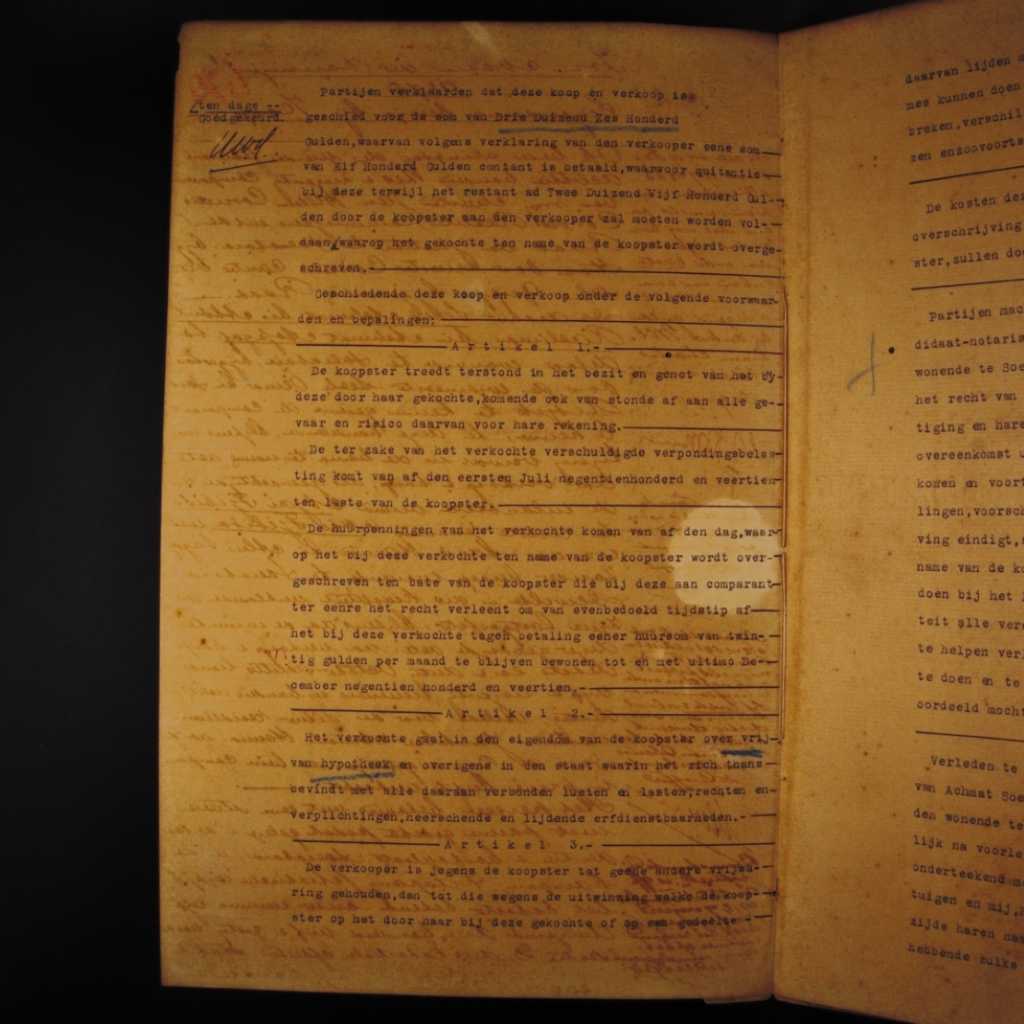 ten dage --
Goedgekeurd.
Partijen verklaarden dat deze koop en verkoop is
geschied voor de som van Drie Duizend Zes Honderd
Gulden, waarvan volgens verklaring van den verkooper eene som
van Elf Honderd Gulden contant is betaald, waarvoor quitantie
bij deze terwijl het restant ad Twee Duizend Vijf Honderd Gul-
den door de koopster aan den verkooper zal moeten worden vol-
daan, waarop het gekochte ten name van de koopster wordt overge-
schreven.
Geschiedende deze koop en verkoop onder de volgende voorwaar-
den en bepalingen:
Artikel 1.-
De koopster treedt terstond in het bezit en genot van het bij
deze door haar gekochte, komende ook van stonde af aan alle ge-
vaar en risico daarvan voor hare rekening.
De ter zake van het verkochte verschuldigde verpondingsbelas-
ting komt van af den eersten Juli negentienhonderd en veertien
ten laste van de koopster.
De huurpenningen van het verkochte komen van af den dag, waar-
op het bij deze verkochte ten name van de koopster wordt over-
geschreven ten bate van de koopster die bij deze aan comparant
ter eenre het recht verleent om van evenbedoeld tijdstip af
het bij deze verkochte tegen betaling eener huursom van twin-
tig gulden per maand te blijven bewonen tot en met ultimo De-
cember negentien honderd en veertien.-
Artikel 2.-
Het verkochte gaat in den eigendom van de koopster over vrij
van hypotheek en overigens in den staat waarin het zich thans
bevindt met alle daaraan verbonden lusten en lasten, rechten en
verplichtingen, heerschende en lijdende erfdienstbaarheden.-
Artikel 3.-
De verkooper is jegens de koopster tot geene andere vrijwa-
ring gehouden, dan tot die wegens de uitwinning welke de koop-
ster op het door haar bij deze gekochte of op een gedeelte
daarvan lijden
mes kunnen doen
breken, verschil
zen enzoovoorts
De kosten de
overschrijving
ster, zullen do
Partijen mac
didaat-notaris
wonende te Soe
het recht van
tiging en hare
overeenkomst
komen en voort
lingen, voorsch
ving eindigt,
name van de ko
doen bij het
teit alle vere
te helpen ver
te doen en te
oordeeld mocht
Verleden te
van Achmat Soe
den wonende te
lijk na voorle
onderteekend m
tuigen en mij,
zijde haren na
hebbende zulks